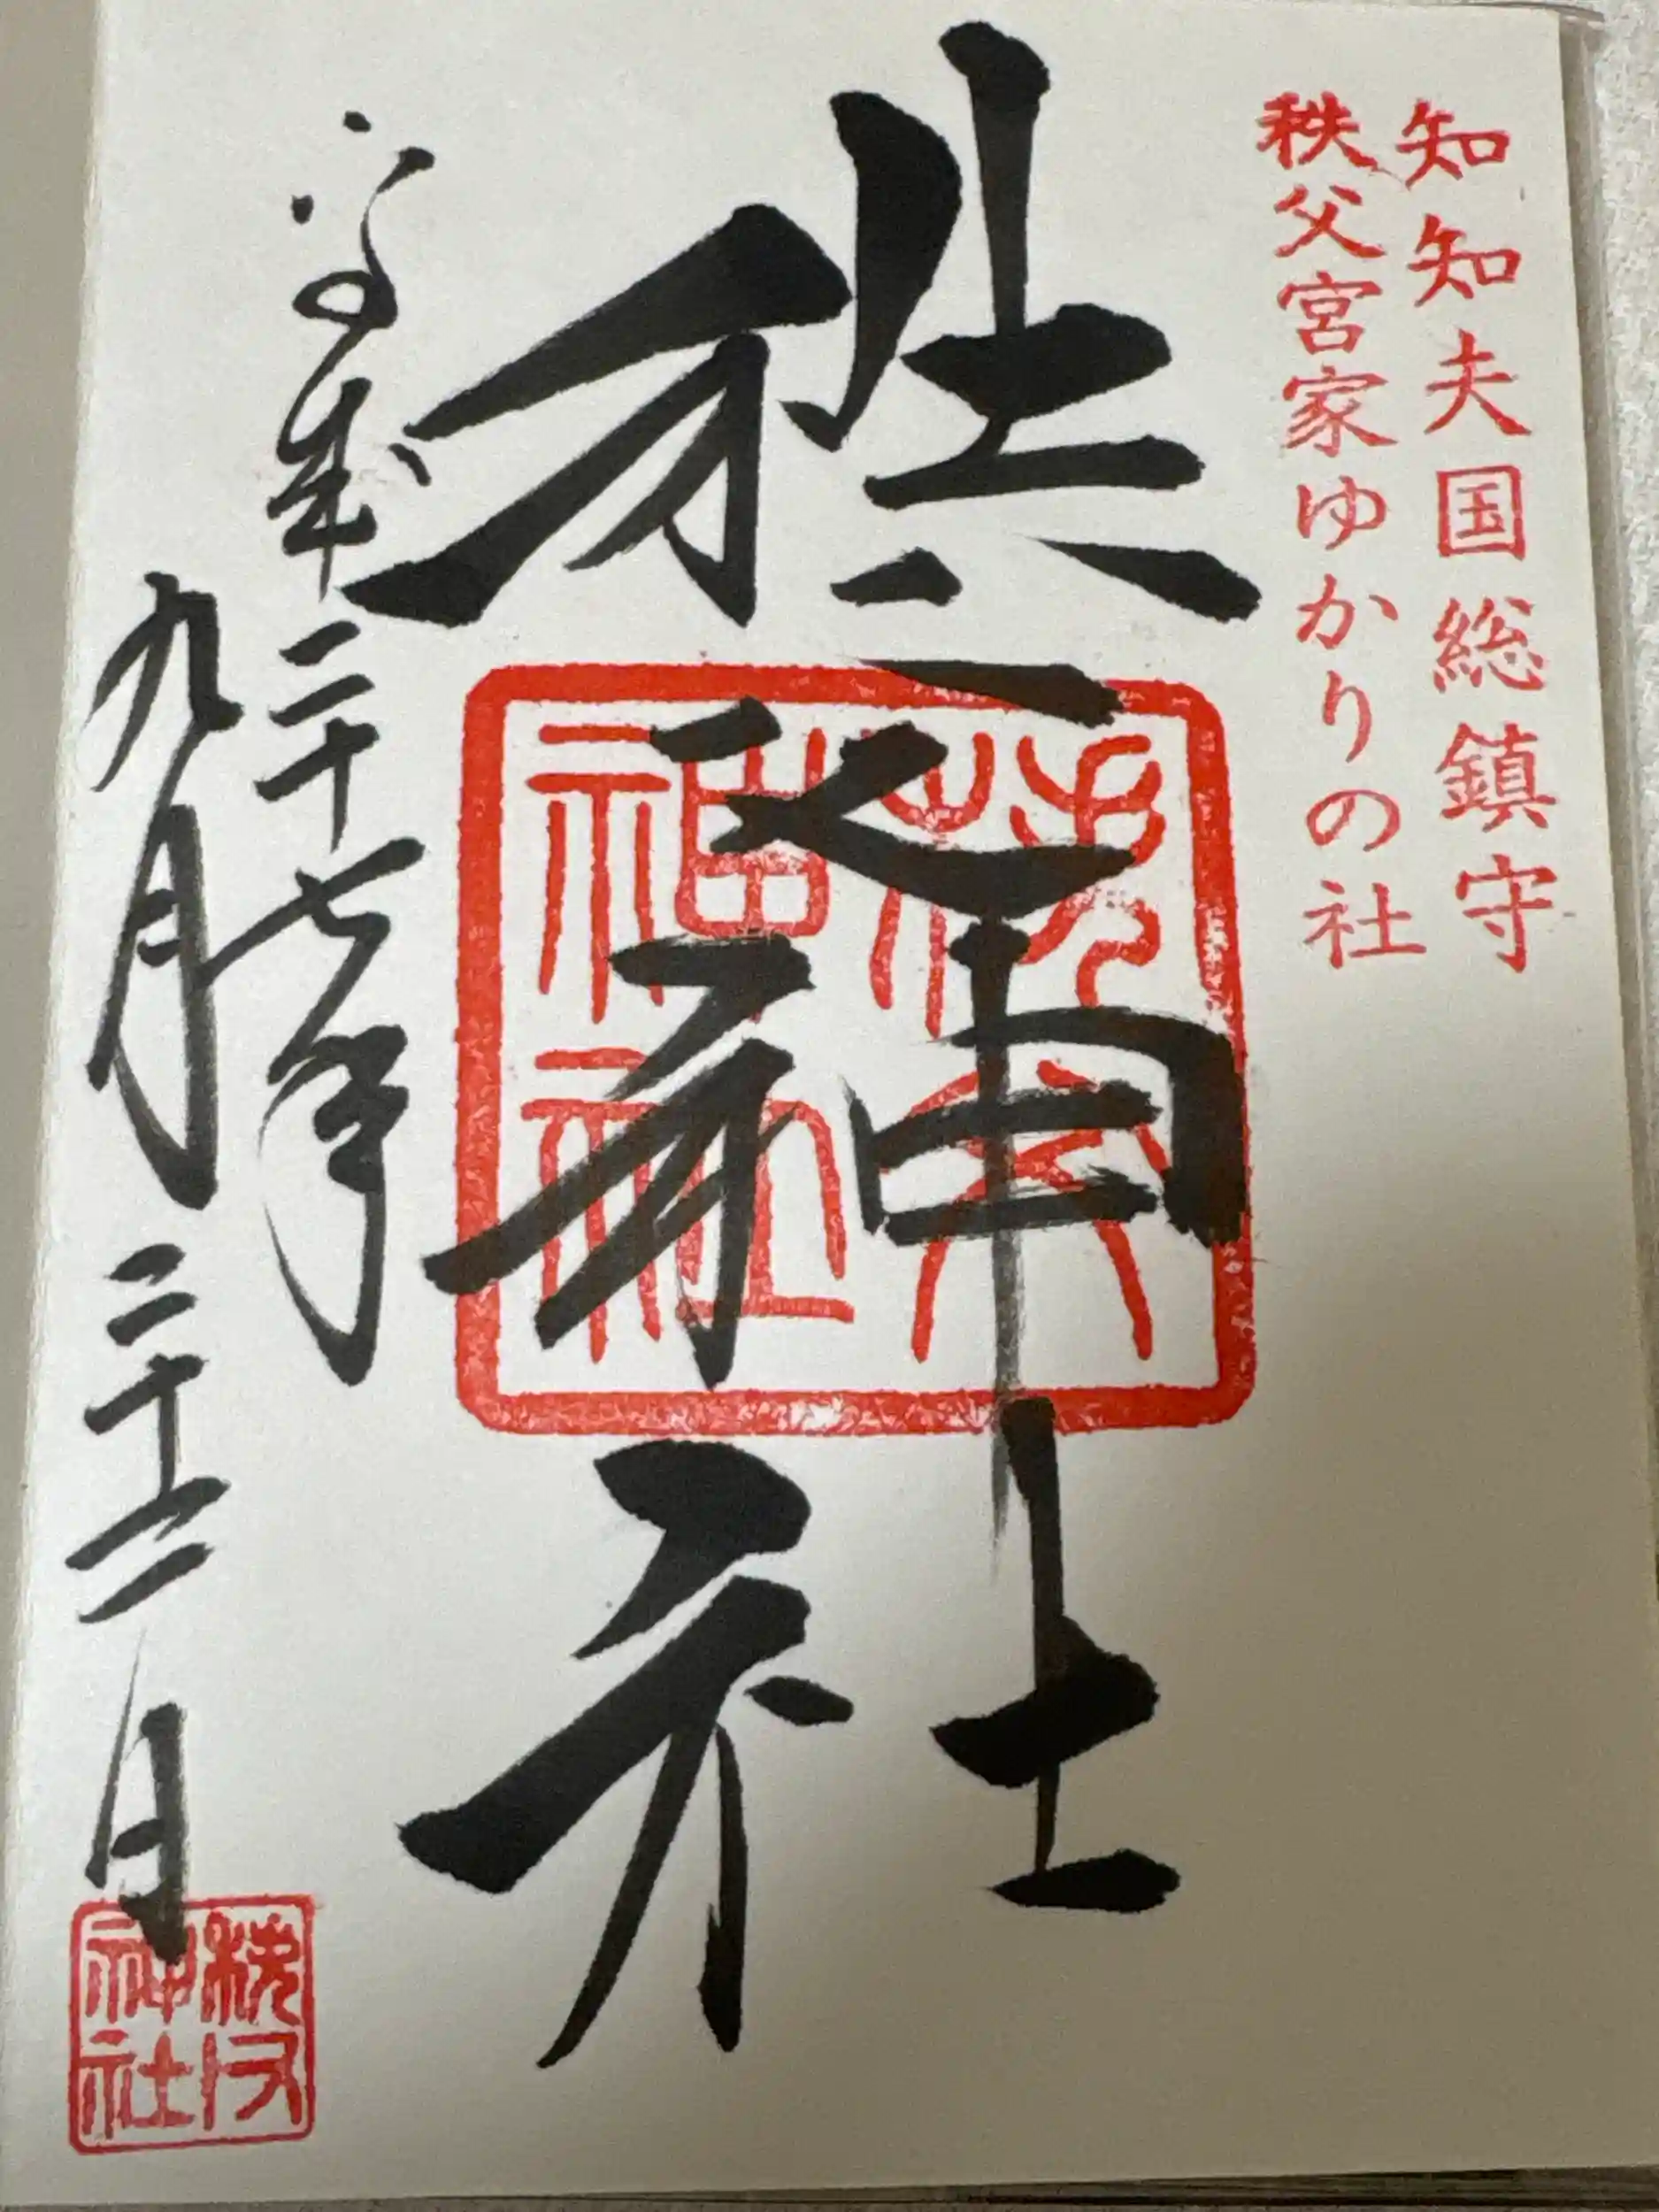 知知夫国総鎮守
秩父宮家ゆかりの社
秩父神社
秩父神社
平成二十七年
九月二十二日
秩父神社